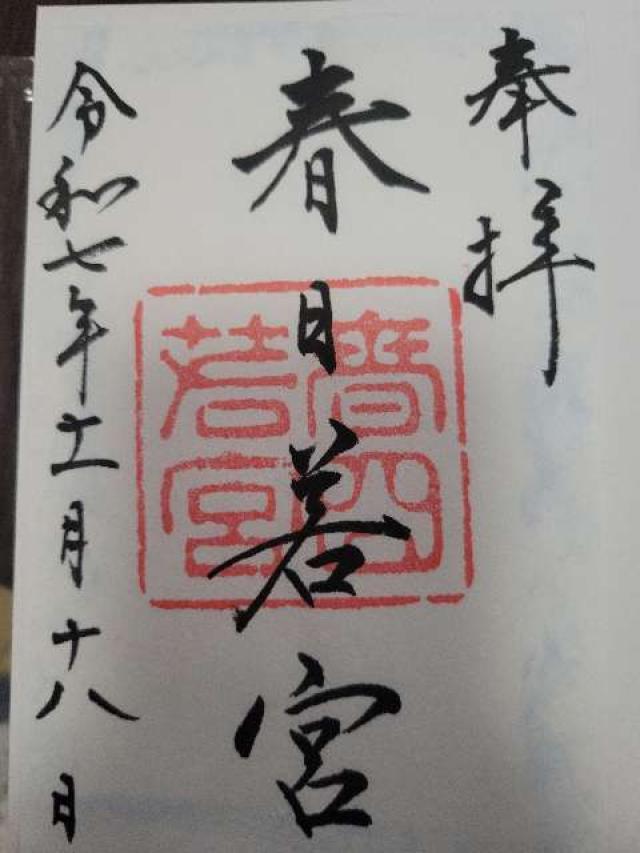 奉拝
春日若宮
春日若宮
令和七年十一月十八日